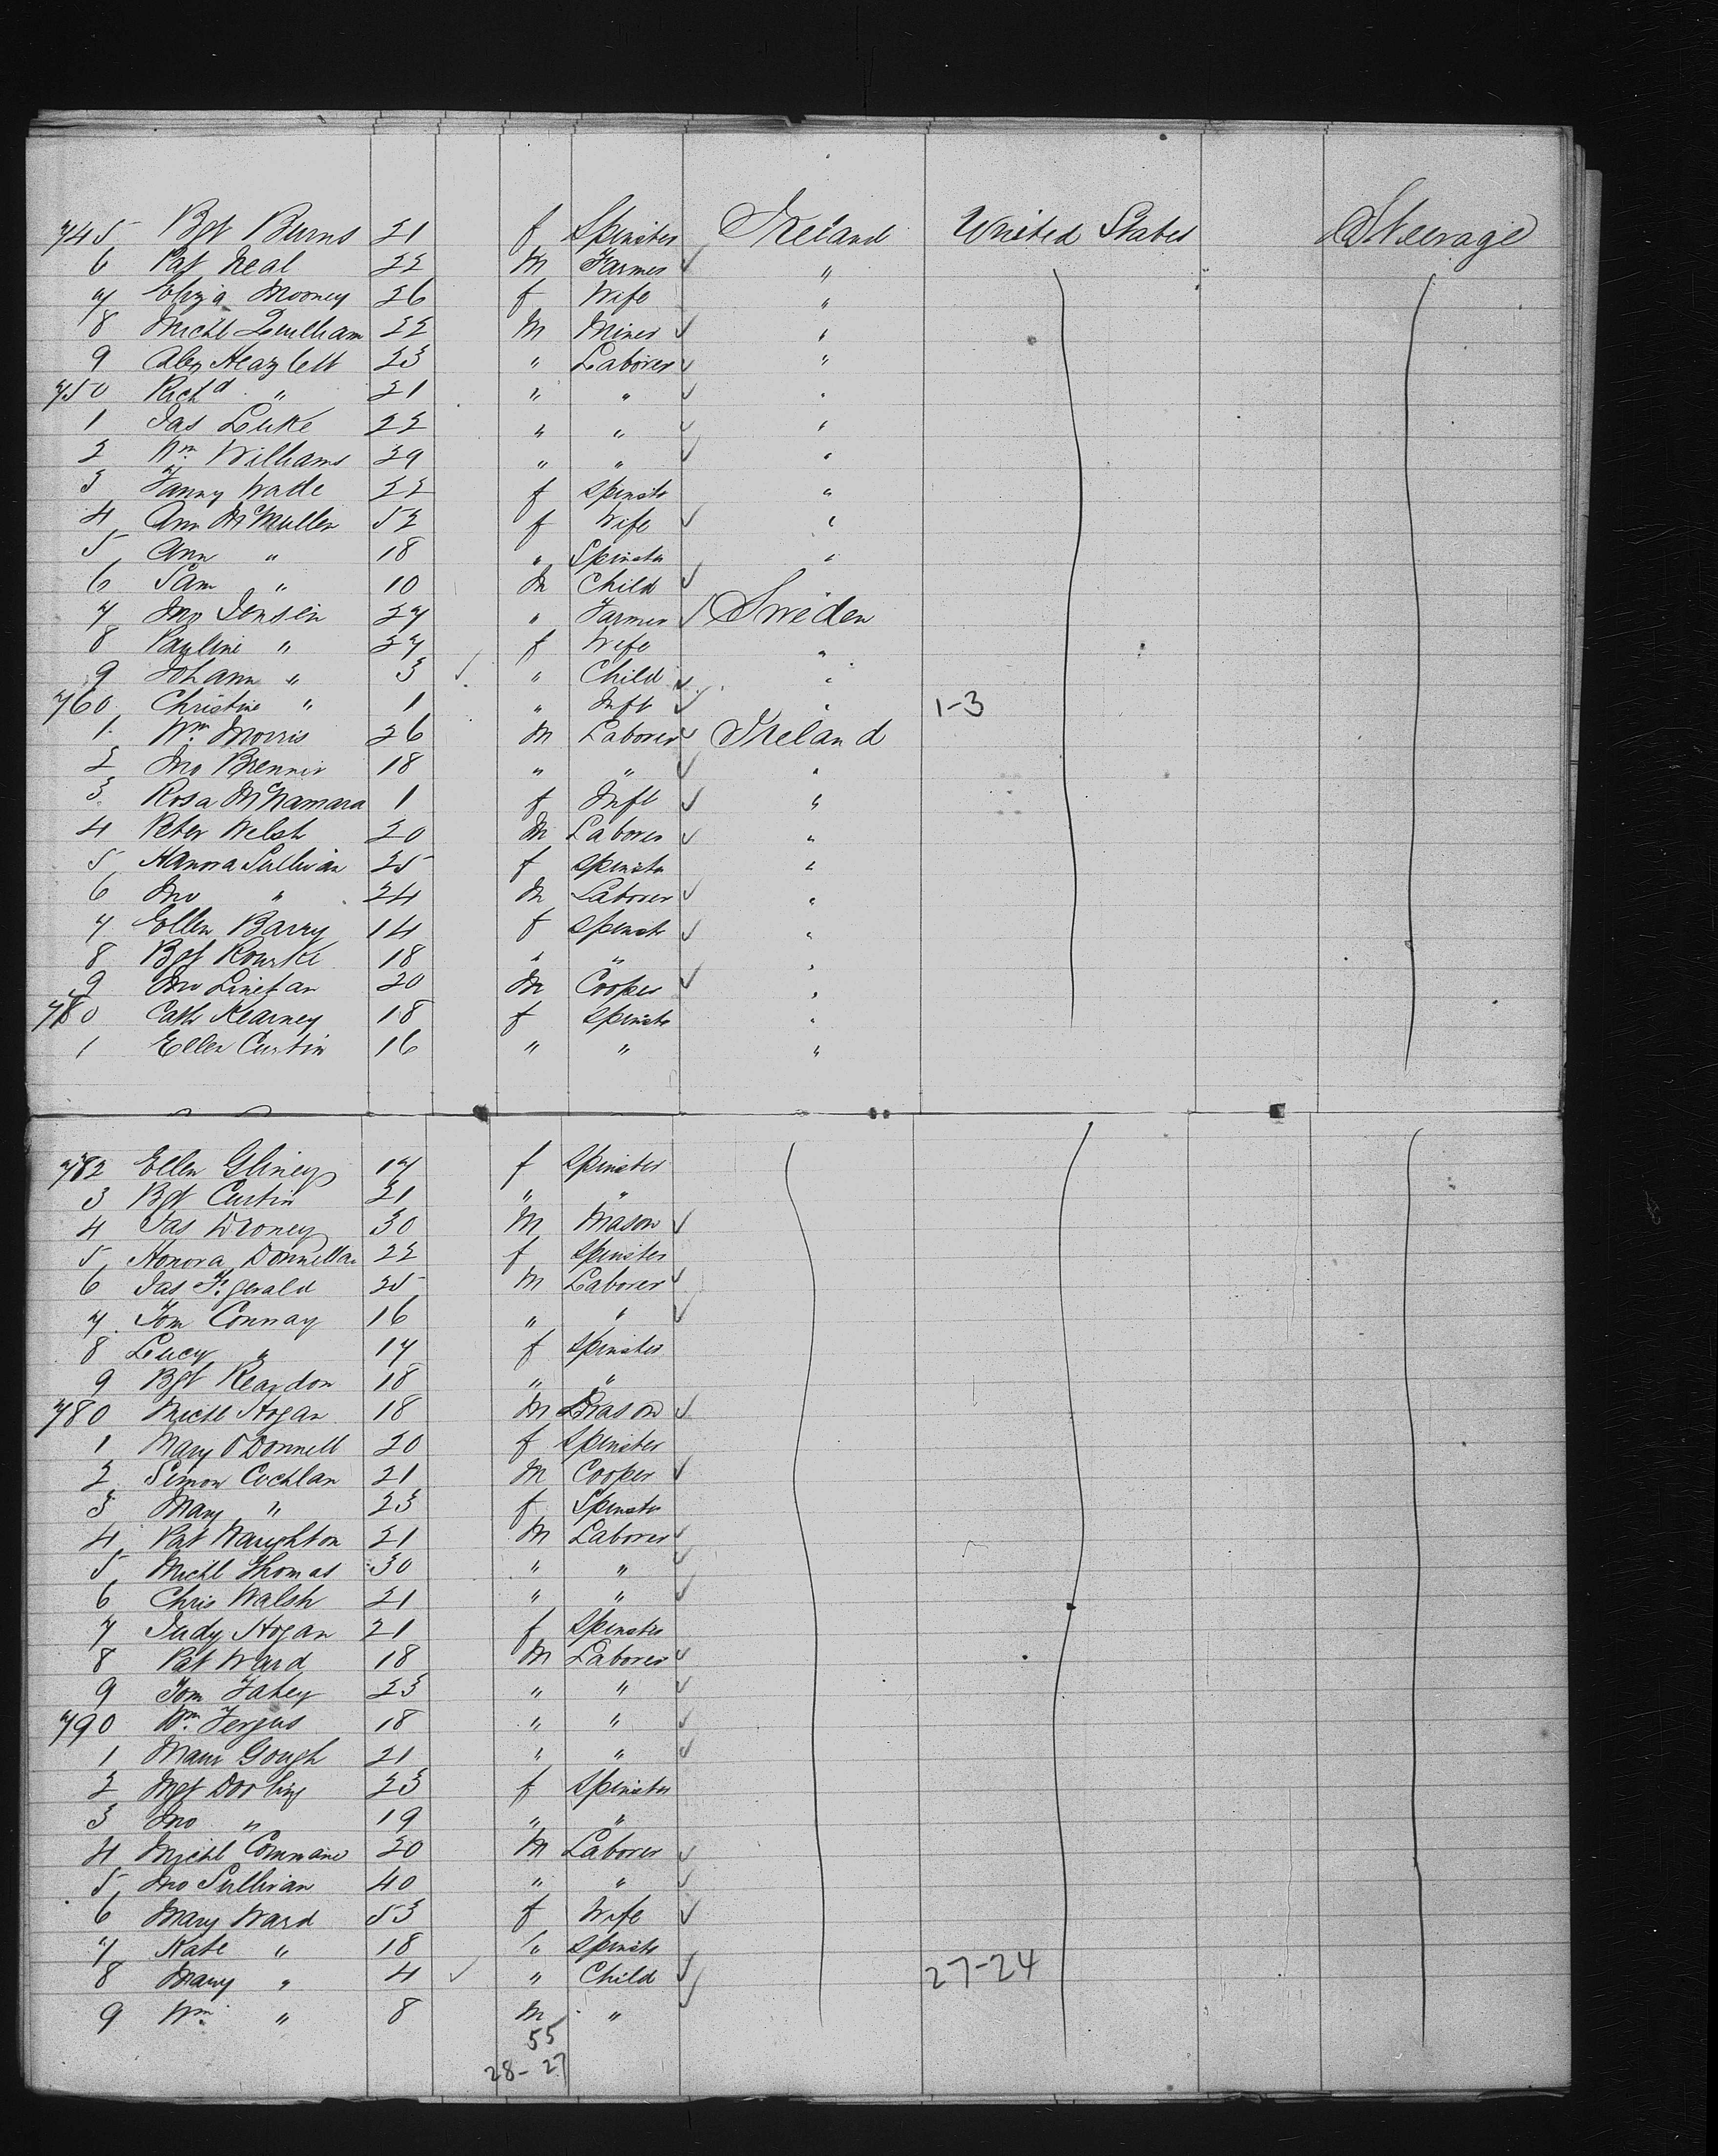 745 Bgt Burns 21 f Spinster Ireland United States Steerage
6 Pat Neal 22 M Farmer ✓ "
7 Eliza Mooney 26 f Wife "
8 Michl Quilham 22 M Miner ✓ "
9 Alex Heazlett 23 " Laborer ✓ "
750 Richd " 21 " " ✓ "
1 Jas Luke 22 " " ✓ "
2 Wm Williams 29 " " ✓ "
3 Fanny Wade 22 f Spinstr "
4 Ann McMullen 52 f Wife ✓ "
5 Ann " 18 " Spinstr "
6 Sam " 10 M Child ✓ "
7 Jno Jensen 27 " Farmer ✓ Sweden
8 Pauline " 27 f Wife "
9 Johann " 3 ✓ " Child ✓ "
760 Christine " 1 " Inft ✓ " 1-3
1 Wm Morris 26 M Laborer ✓ Ireland
2 Jno Brennir 18 " " ✓ "
3 Rosa McNamara 1 f Inft ✓ "
4 Peter Welsh 20 M Laborer ✓ "
5 Hanora Sullivan 25 f Spinstr "
6 Jno " 24 M Laborer ✓ "
7 Ellen Barry 14 f Spinstr ✓ "
8 Bgt Rourke 18 " " "
9 Jno Linehan 20 M Cooper ✓ "
780 Cath Kearney 18 f Spinstr "
1 Ellen Curtin 16 " " "
782 Ellen Gliney 17 f Spinster
3 Bgt Curtin 21 " "
4 Jas Droney 30 M Mason ✓
5 Honora Donnellan 22 f Spinster
6 Jas F.gerald 25 M Laborer ✓
7 Tom Connay 16 " " ✓
8 Lucy " 17 f Spinster
9 Bgt Reardon 18 " "
780 Michl Hogan 18 M Mason ✓
1 Mary O'Donnell 20 f Spinster
2 Simon Cochlan 21 M Cooper ✓
3 Mary " 23 f Spinstr
4 Pat Naughton 21 M Laborer ✓
5 Michl Thomas 30 " " ✓
6 Chris Walsh 21 " " ✓
7 Judy Hogan 21 f Spinster
8 Pat Ward 18 M Laborer ✓
9 Tom Fahey 23 " " ✓
790 Wm Fergus 18 " " ✓
1 Maur Gough 21 " " ✓
2 Mgt Dorling 23 f Spinstr
3 Jno " 19 " "
4 Michl Commane 20 M Laborer ✓
5 Jno Sullivan 40 " " ✓
6 Mary Ward 53 f Wife ✓
7 Kate " 18 " Spinstr
8 Mary " 4 ✓ " Child ✓ 27-24
9 Wm " 8 M " ✓
55
28-27